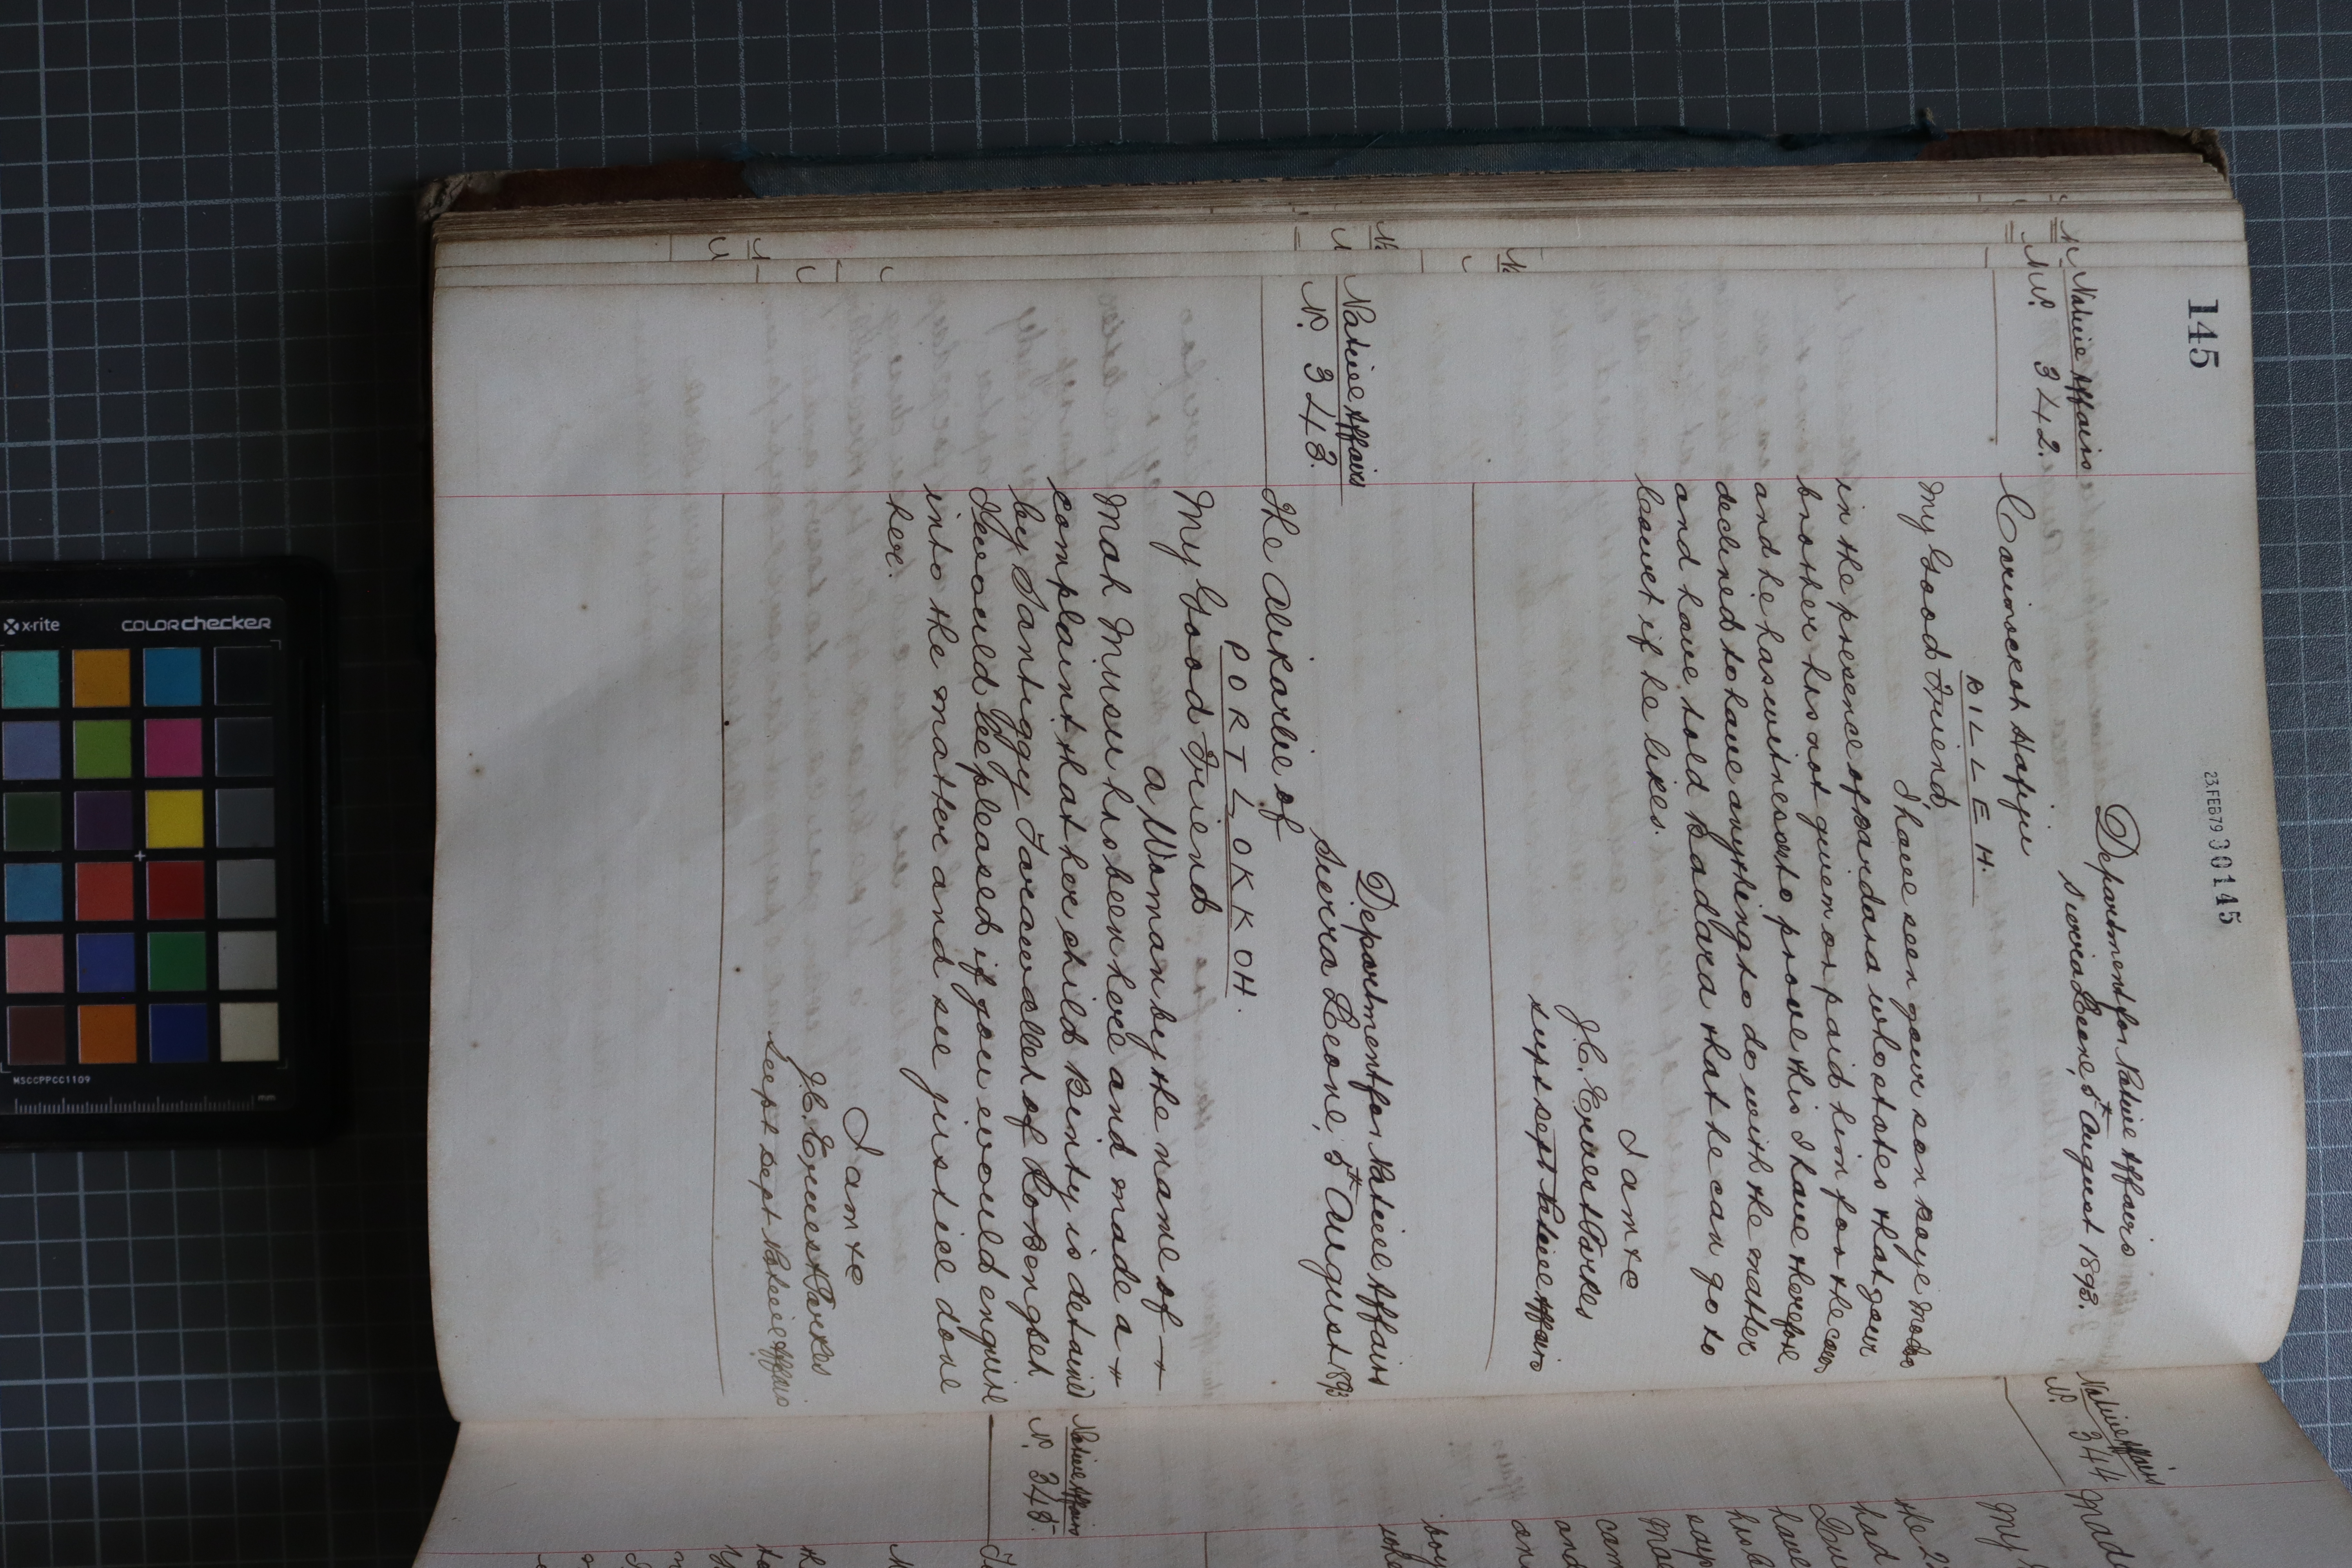 145
23 FEB 79 30145
Native Affairs
No. 342.
Department for Native Affairs
Sierra Leone, 5th August 1893.
Carimockoh Happie
BILLEH.
My Good Friend,
I have seen your son Boye Modoo
in the presence of Badara who states that your
brother has not given or paid him for the cow
and he has witnesses to prove this I have therefore
declined to have anything to do with the matter
and have told Badara that he can go to
Court if he likes.
I am &c
J.C. Ernest Parkes
Supt Dept Native Affairs
Native Affairs
No. 343.
Department for Native Affairs
Sierra Leone, 5th August 1893
The Alikarlie of
PORT LOKKOH.
My Good Friend
A Woman by the name of
Mah Musu has been here and made a
complaint that her child Binty is detained
by Santiggy Tarawalleh of
I would be pleased if you would enquire
into the matter and see justice done
her.
I am &c
J.C. Ernest Parkes
Supt Dept Native Affairs
Native Affairs
No. 344
My
Native Affairs
No. 345.
x-rite
COLORchecker
MSCCPPCC1109
mm